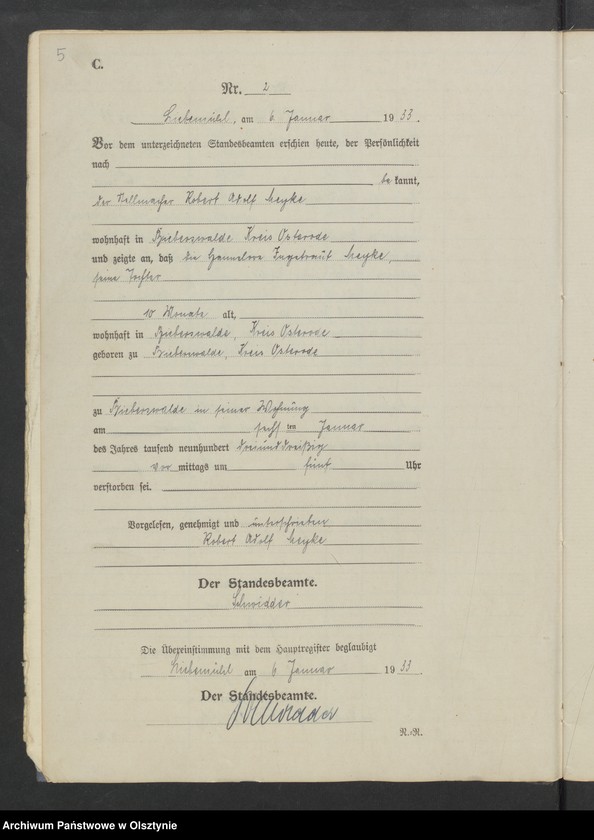 5
C.
Nr. 2
Liebemühl, am 6 Januar 1933.
Vor dem unterzeichneten Standesbeamten erschien heute, der Persönlichkeit
nach
bekannt,
der Stellmacher Robert Adolf
wohnhaft in Bieberswalde Kreis Osterode
und zeigte an, daß die Hannelore Ingetraut
seine Tochter
10 Monate alt,
wohnhaft in Bieberswalde, Kreis Osterode
geboren zu Bieberswalde, Kreis Osterode
zu Bieberswalde in seiner Wohnung
am sechsten Januar
des Jahres tausend neunhundert dreiunddreißig
vor mittags um fünf Uhr
verstorben sei.
Vorgelesen, genehmigt und unterschrieben
Robert Adolf
Der Standesbeamte.
Schwidder
Die Übereinstimmung mit dem Hauptregister beglaubigt
Liebemühl am 6 Januar 1933.
Der Standesbeamte.
Schwidder
R.-R.
Archiwum Państwowe w Olsztynie